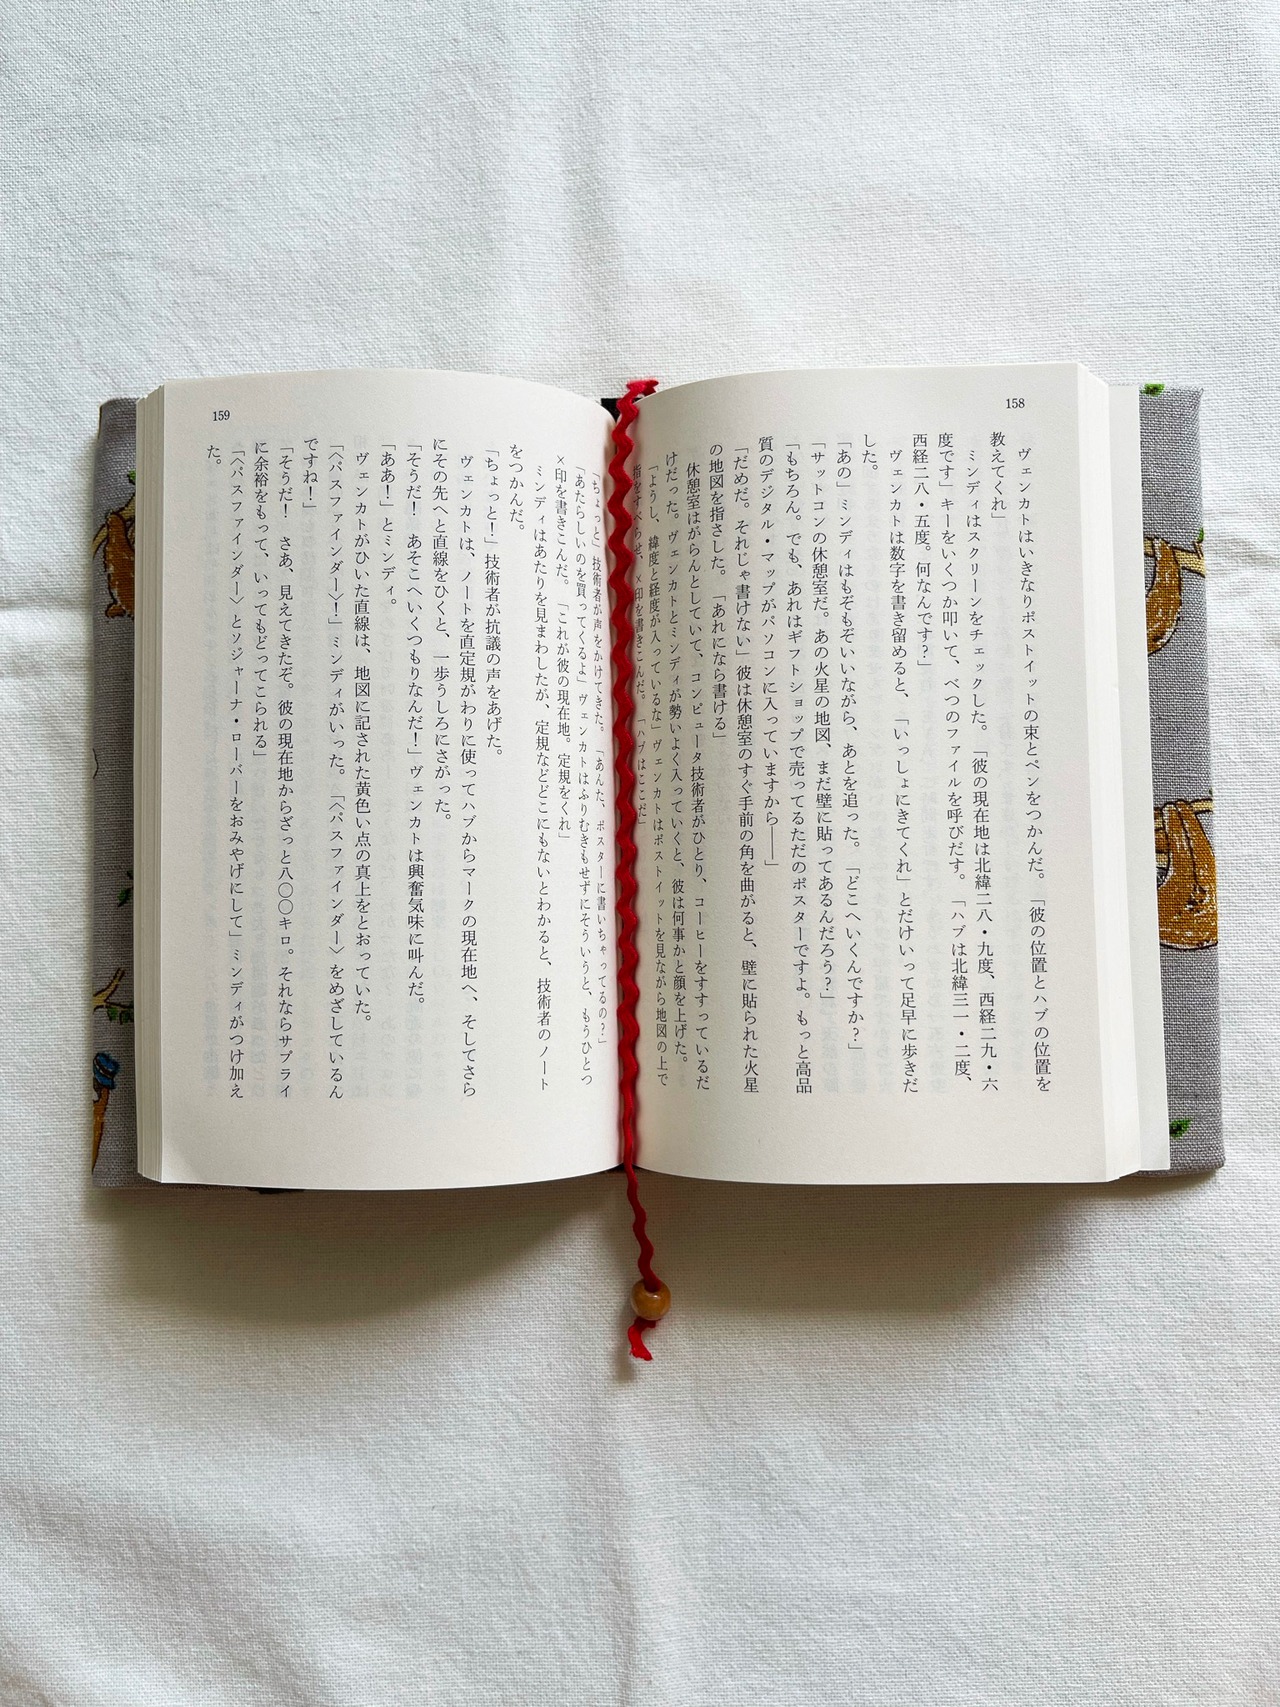 158
ヴェンカトはいきなりポストイットの束とペンをつかんだ。「彼の位置とハブの位置を
教えてくれ」
ミンディはスクリーンをチェックした。「彼の現在地は北緯二八・九度、西経二九・六
度です」キーをいくつか叩いて、べつのファイルを呼びだす。「ハブは北緯三一・二度、
西経二八・五度。何なんです？」
ヴェンカトは数字を書き留めると、「いっしょにきてくれ」とだけいって足早に歩きだ
した。
「あの」ミンディはもぞもぞいいながら、あとを追った。「どこへいくんですか？」
「サットコンの休憩室だ。あの火星の地図、まだ壁に貼ってあるんだろう？」
「もちろん。でも、あれはギフトショップで売ってるただのポスターですよ。もっと高品
質のデジタル・マップがパソコンに入っていますから――」
「だめだ。それじゃ書けない」彼は休憩室のすぐ手前の角を曲がると、壁に貼られた火星
の地図を指さした。「あれになら書ける」
休憩室はがらんとしていて、コンピュータ技術者がひとり、コーヒーをすすっているだ
けだった。ヴェンカトとミンディが勢いよく入っていくと、彼は何事かと顔を上げた。
「ようし、緯度と経度が入っているな」ヴェンカトはポストイットを見ながら地図の上で
指をすべらせ、×印を書きこんだ。「ハブはここだ」
159
「ちょっと」技術者が声をかけてきた。「あんた、ポスターに書いちゃってるの？」
「あたらしいのを買ってくるよ」ヴェンカトはふりむきもせずにそういうと、もうひとつ
×印を書きこんだ。「これが彼の現在地。定規をくれ」
ミンディはあたりを見まわしたが、定規などどこにもないとわかると、技術者のノート
をつかんだ。
「ちょっと！」技術者が抗議の声をあげた。
ヴェンカトは、ノートを直定規がわりに使ってハブからマークの現在地へ、そしてさら
にその先へと直線をひくと、一歩うしろにさがった。
「そうだ！　あそこへいくつもりなんだ！」ヴェンカトは興奮気味に叫んだ。
「ああ！」とミンディ。
ヴェンカトがひいた直線は、地図に記された黄色い点の真上をとおっていた。
「〈パスファインダー〉！」ミンディがいった。「〈パスファインダー〉をめざしているん
ですね！」
「そうだ！　さあ、見えてきたぞ。彼の現在地からざっと八〇〇キロ。それならサプライ
に余裕をもって、いってもどってこられる」
「〈パスファインダー〉とソジャーナ・ローバーをおみやげにして」ミンディがつけ加え
た。